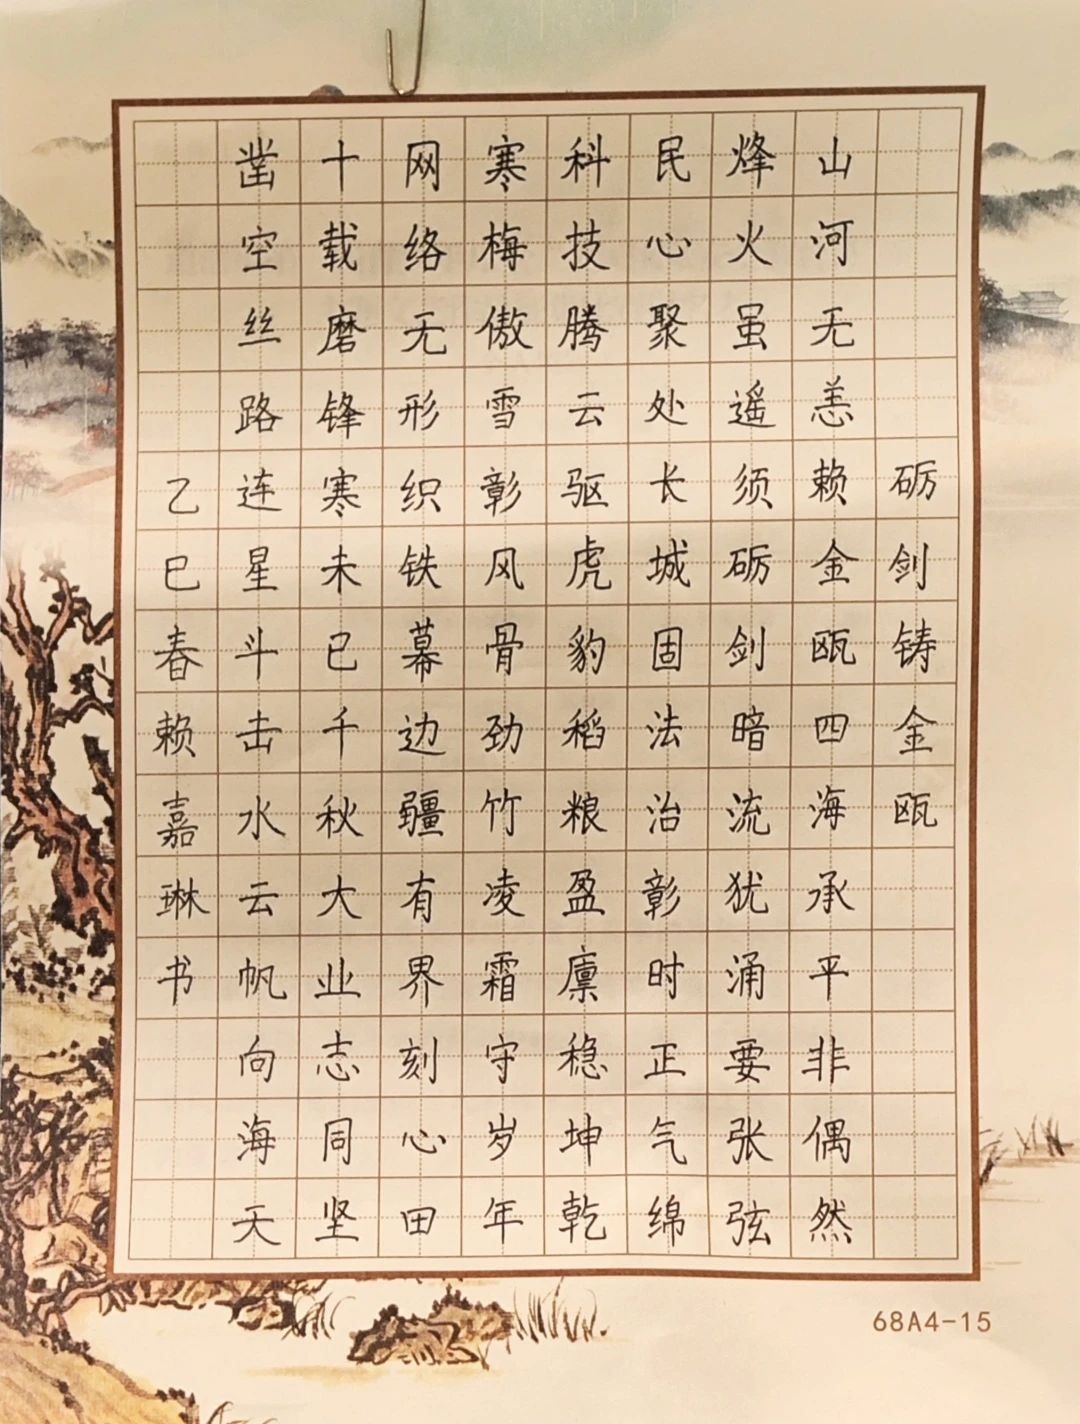 砺剑铸金瓯
山河无恙赖金瓯四海承平非偶然
烽火虽遥须砺剑暗流犹涌要张弦
民心聚处长城固法治彰时正气绵
科技腾云驱虎豹稻粮盈廪稳坤乾
寒梅傲雪彰风骨劲竹凌霜守岁年
网络无形织铁幕边疆有界刻心田
十载磨锋寒未已千秋大业志同坚
凿空丝路连星斗击水云帆向海天
乙巳春赖嘉琳书
68A4-15